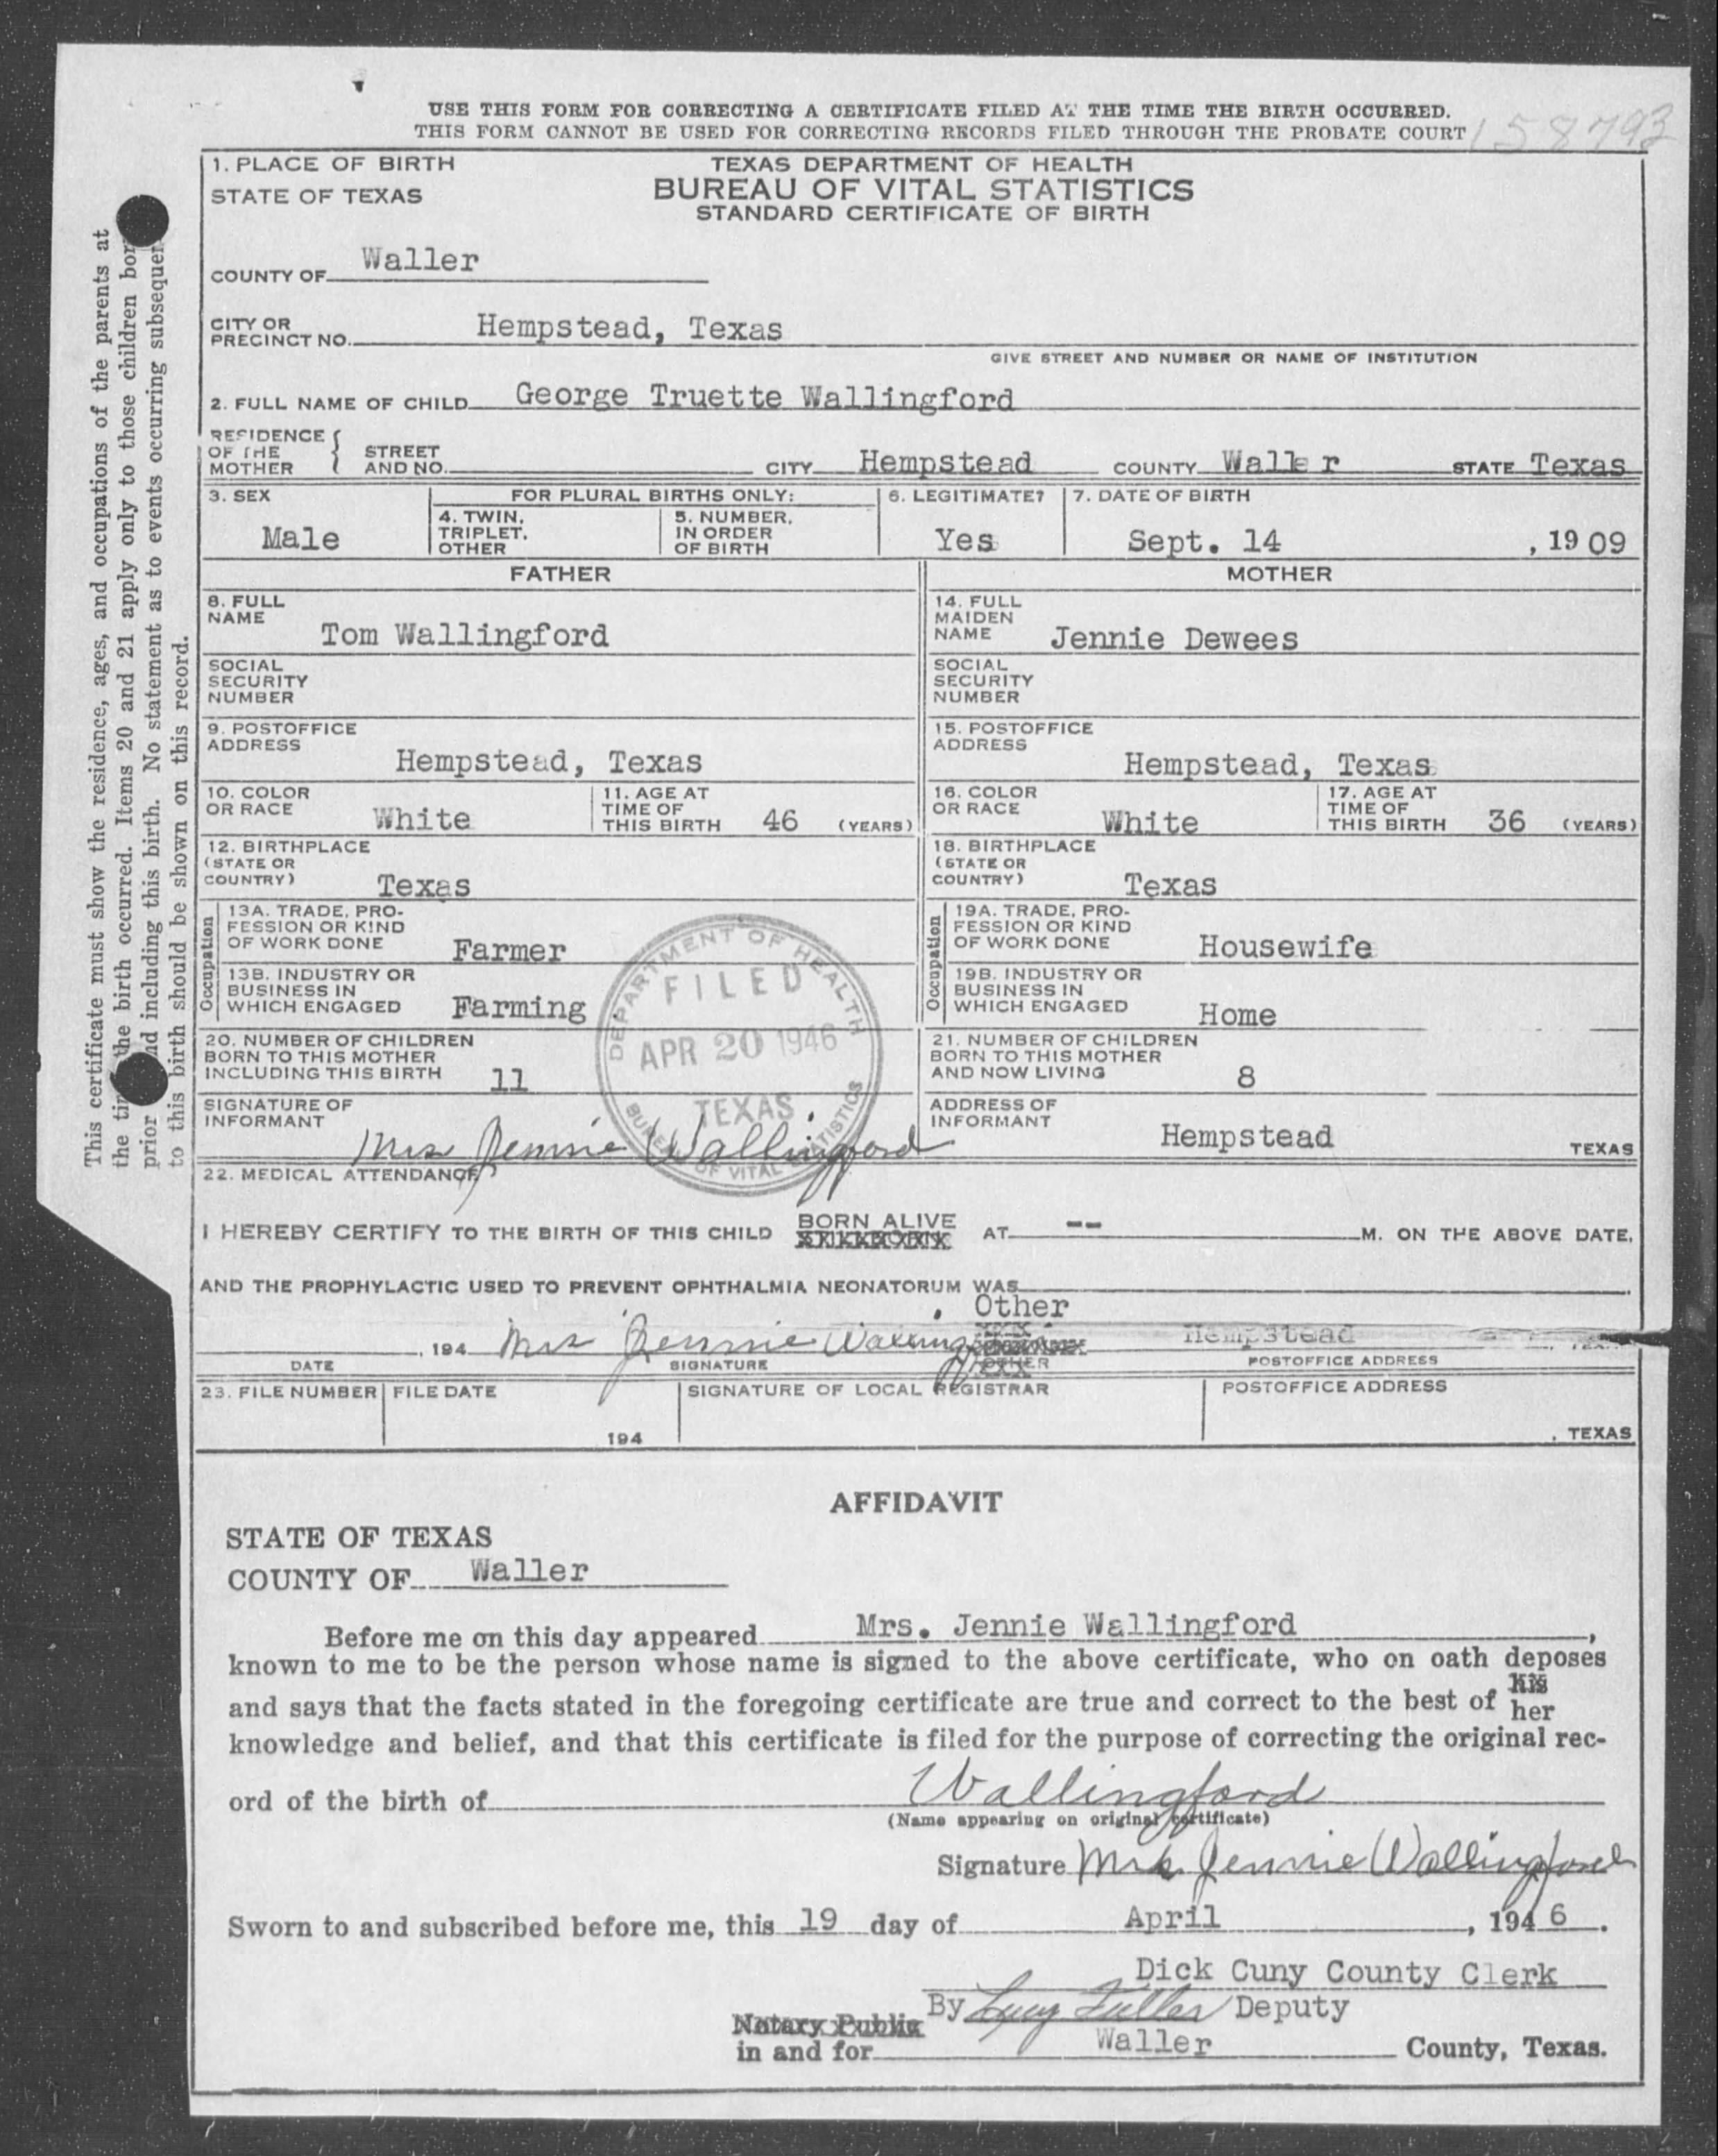 USE THIS FORM FOR CORRECTING A CERTIFICATE FILED AT THE TIME THE BIRTH OCCURRED.
THIS FORM CANNOT BE USED FOR CORRECTING RECORDS FILED THROUGH THE PROBATE COURT
158793
1. PLACE OF BIRTH
STATE OF TEXAS
TEXAS DEPARTMENT OF HEALTH
BUREAU OF VITAL STATISTICS
STANDARD CERTIFICATE OF BIRTH
COUNTY OF Waller
CITY OR
PRECINCT NO. Hempstead, Texas
GIVE STREET AND NUMBER OR NAME OF INSTITUTION
2. FULL NAME OF CHILD George Truette Wallingford
RESIDENCE
OF THE
MOTHER
STREET
AND NO. CITY Hempstead COUNTY Waller STATE Texas
3. SEX
Male
FOR PLURAL BIRTHS ONLY:
4. TWIN,
TRIPLET,
OTHER
5. NUMBER,
IN ORDER
OF BIRTH
6. LEGITIMATE?
Yes
7. DATE OF BIRTH
Sept. 14 , 1909
FATHER
8. FULL
NAME
Tom Wallingford
SOCIAL
SECURITY
NUMBER
9. POSTOFFICE
ADDRESS
Hempstead, Texas
10. COLOR
OR RACE White
11. AGE AT
TIME OF
THIS BIRTH 46 (YEARS)
12. BIRTHPLACE
(STATE OR
COUNTRY) Texas
Occupation
13A. TRADE, PRO-
FESSION OR KIND
OF WORK DONE Farmer
13B. INDUSTRY OR
BUSINESS IN
WHICH ENGAGED Farming
MOTHER
14. FULL
MAIDEN
NAME Jennie Dewees
SOCIAL
SECURITY
NUMBER
15. POSTOFFICE
ADDRESS
Hempstead, Texas
16. COLOR
OR RACE White
17. AGE AT
TIME OF
THIS BIRTH 36 (YEARS)
18. BIRTHPLACE
(STATE OR
COUNTRY) Texas
Occupation
19A. TRADE, PRO-
FESSION OR KIND
OF WORK DONE Housewife
19B. INDUSTRY OR
BUSINESS IN
WHICH ENGAGED Home
20. NUMBER OF CHILDREN
BORN TO THIS MOTHER
INCLUDING THIS BIRTH 11
21. NUMBER OF CHILDREN
BORN TO THIS MOTHER
AND NOW LIVING 8
DEPARTMENT OF HEALTH
FILED
APR 20 1946
TEXAS
BUREAU OF VITAL STATISTICS
SIGNATURE OF
INFORMANT Mrs Jennie Wallingford
ADDRESS OF
INFORMANT Hempstead TEXAS
22. MEDICAL ATTENDANCE
I HEREBY CERTIFY TO THE BIRTH OF THIS CHILD BORN ALIVE AT -- M. ON THE ABOVE DATE,
AND THE PROPHYLACTIC USED TO PREVENT OPHTHALMIA NEONATORUM WAS
Other
, 194 Mrs Jennie Wallingford Hempstead
DATE SIGNATURE OTHER POSTOFFICE ADDRESS
23. FILE NUMBER FILE DATE SIGNATURE OF LOCAL REGISTRAR POSTOFFICE ADDRESS
194 , TEXAS
AFFIDAVIT
STATE OF TEXAS
COUNTY OF Waller
Before me on this day appeared Mrs. Jennie Wallingford,
known to me to be the person whose name is signed to the above certificate, who on oath deposes
and says that the facts stated in the foregoing certificate are true and correct to the best of his
her
knowledge and belief, and that this certificate is filed for the purpose of correcting the original rec-
ord of the birth of Wallingford
(Name appearing on original certificate)
Signature Mrs. Jennie Wallingford
Sworn to and subscribed before me, this 19 day of April, 1946.
Dick Cuny County Clerk
By Lucy Fuller Deputy
Notary Public
in and for Waller County, Texas.
This certificate must show the residence, ages, and occupations of the parents at
the the birth occurred. Items 20 and 21 apply only to those children
prior including this birth. No statement as to events occurring
to this birth should be shown on this record.